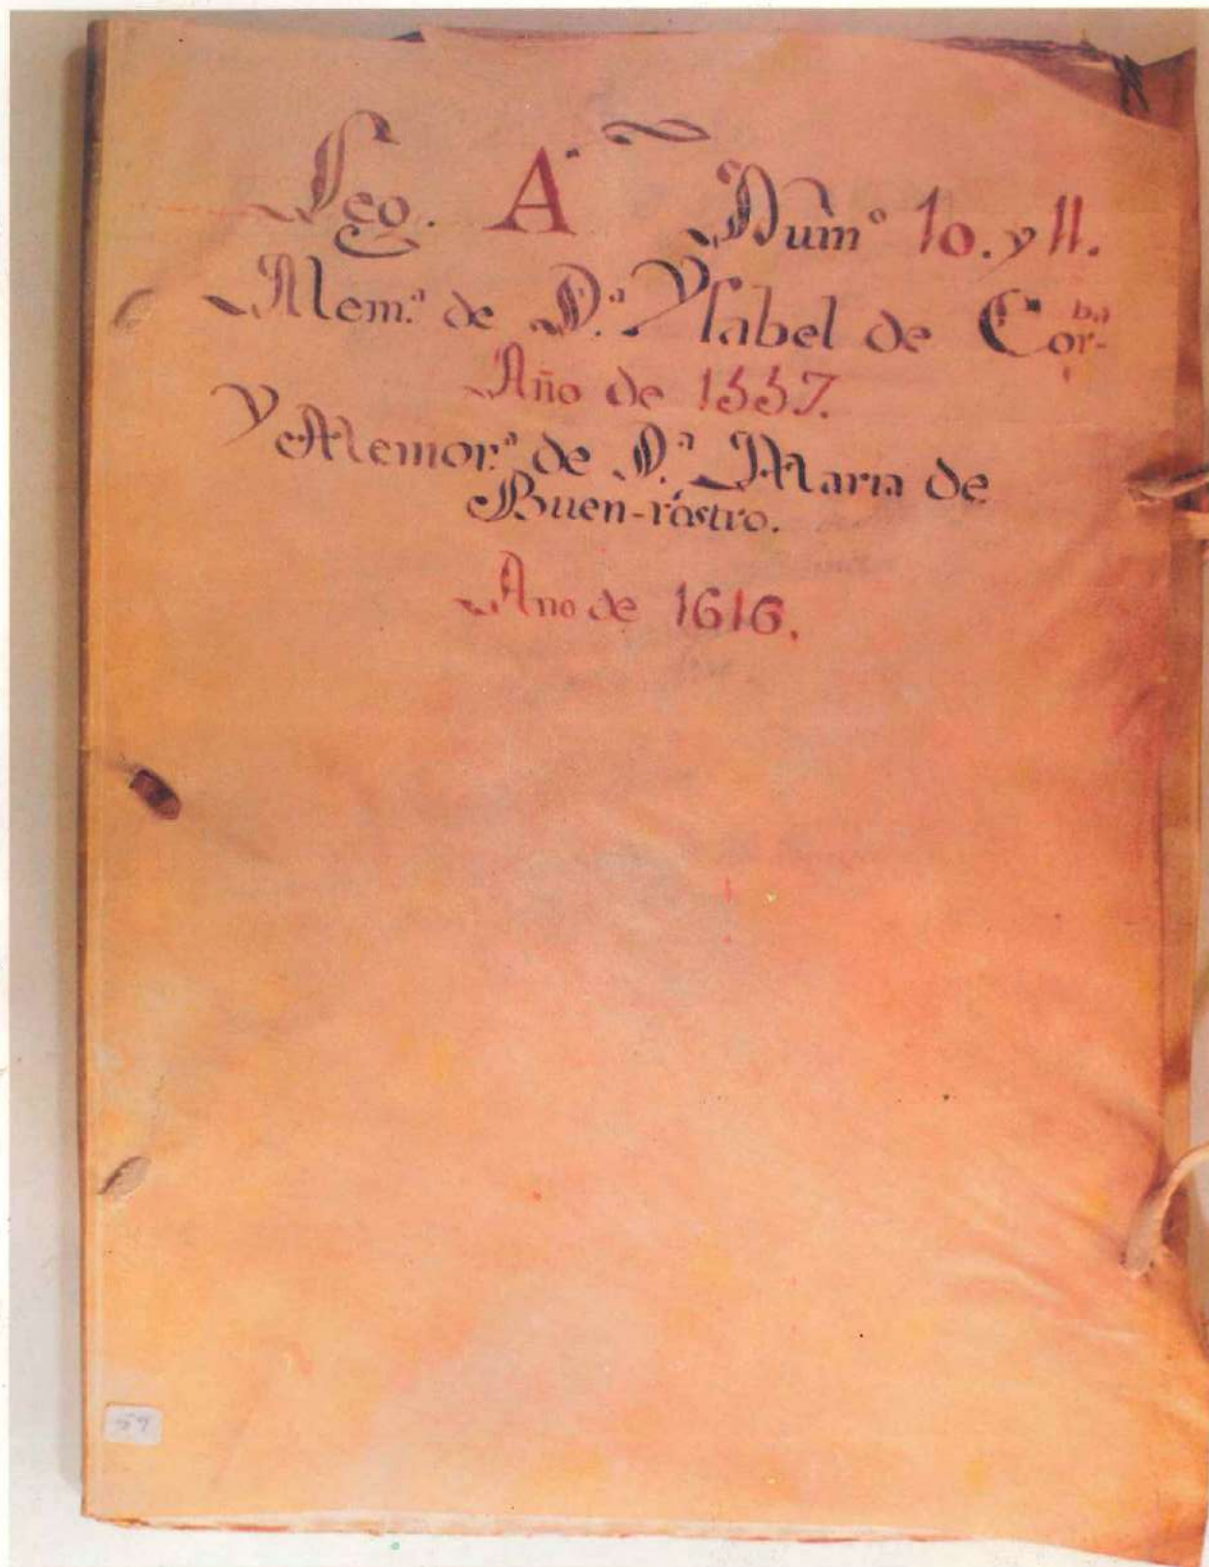 Leg. A. Num.º 10. y 11.
Mem.ª de D.ª Ysabel de Cor-ba
Año de 1557.
Y Memor.ª de D.ª Maria de
Buen-rostro.
Ano de 1616.